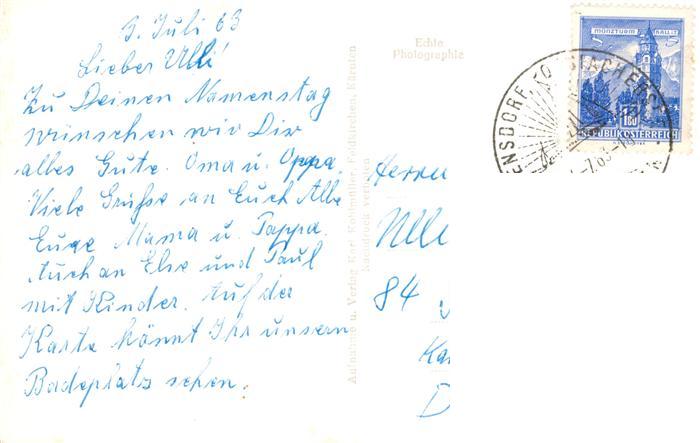 3. Juli 63
Lieber Ulli!
Zu Deinen Namenstag
wünschen wir Dir
alles Gute. Oma u. Oppa.
Viele Grüße an Euch Alle
Eure Mama u. Pappa.
Auch an Else und Paul
mit Kinder. Auf der
Karte könnt Ihr unsern
Badeplatz sehen.
Echte
Photographie
Aufnahme u. Verlag Karl Kohlmüller, Kärnten
Nachdruck verboten
MÜNZTURM HALL I. T.
S S
1.80
REPUBLIK ÖSTERREICH
Herrn
84